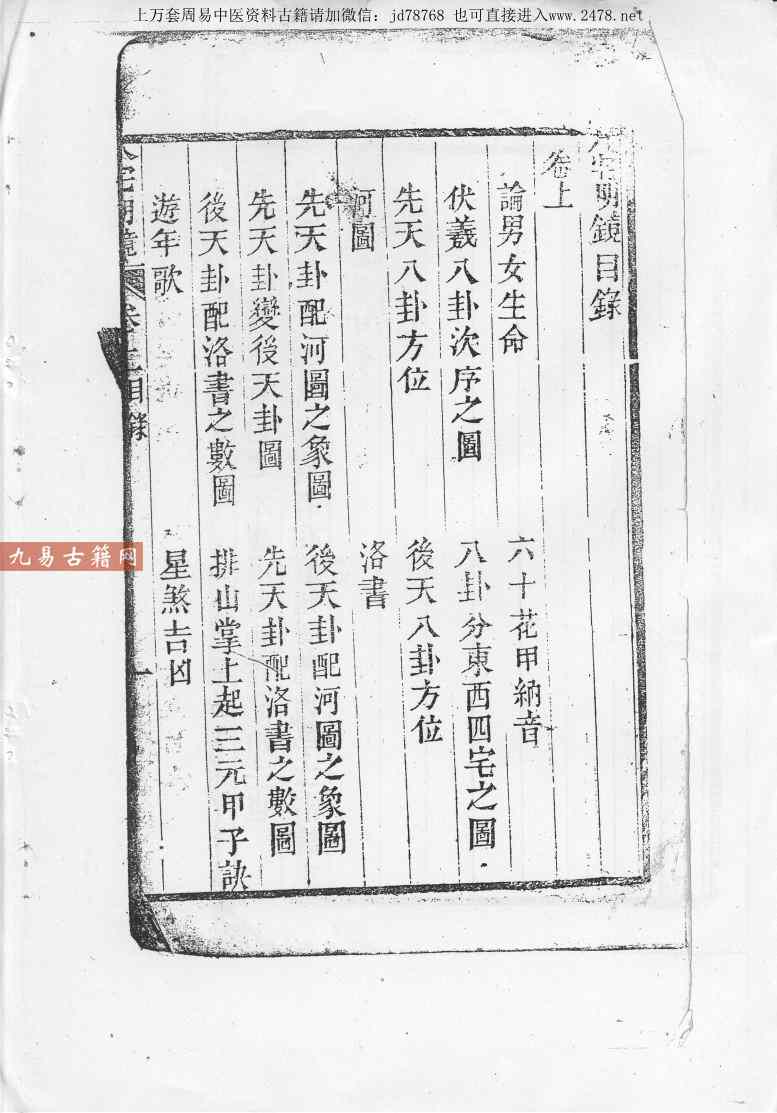 上万套周易中医资料古籍请加微信：jd78768 也可直接进入www.2478.net
八宅明鏡目錄
卷上
論男女生命 六十花甲納音
伏羲八卦次序之圖 八卦分東西四宅之圖
先天八卦方位 後天八卦方位
河圖 洛書
先天卦配河圖之象圖 後天卦配河圖之象圖
先天卦變後天卦圖 先天卦配洛書之數圖
後天卦配洛書之數圖 排山掌上起三元甲子訣
遊年歌 星煞吉凶
八宅明鏡 卷上目錄 一
九易古籍网